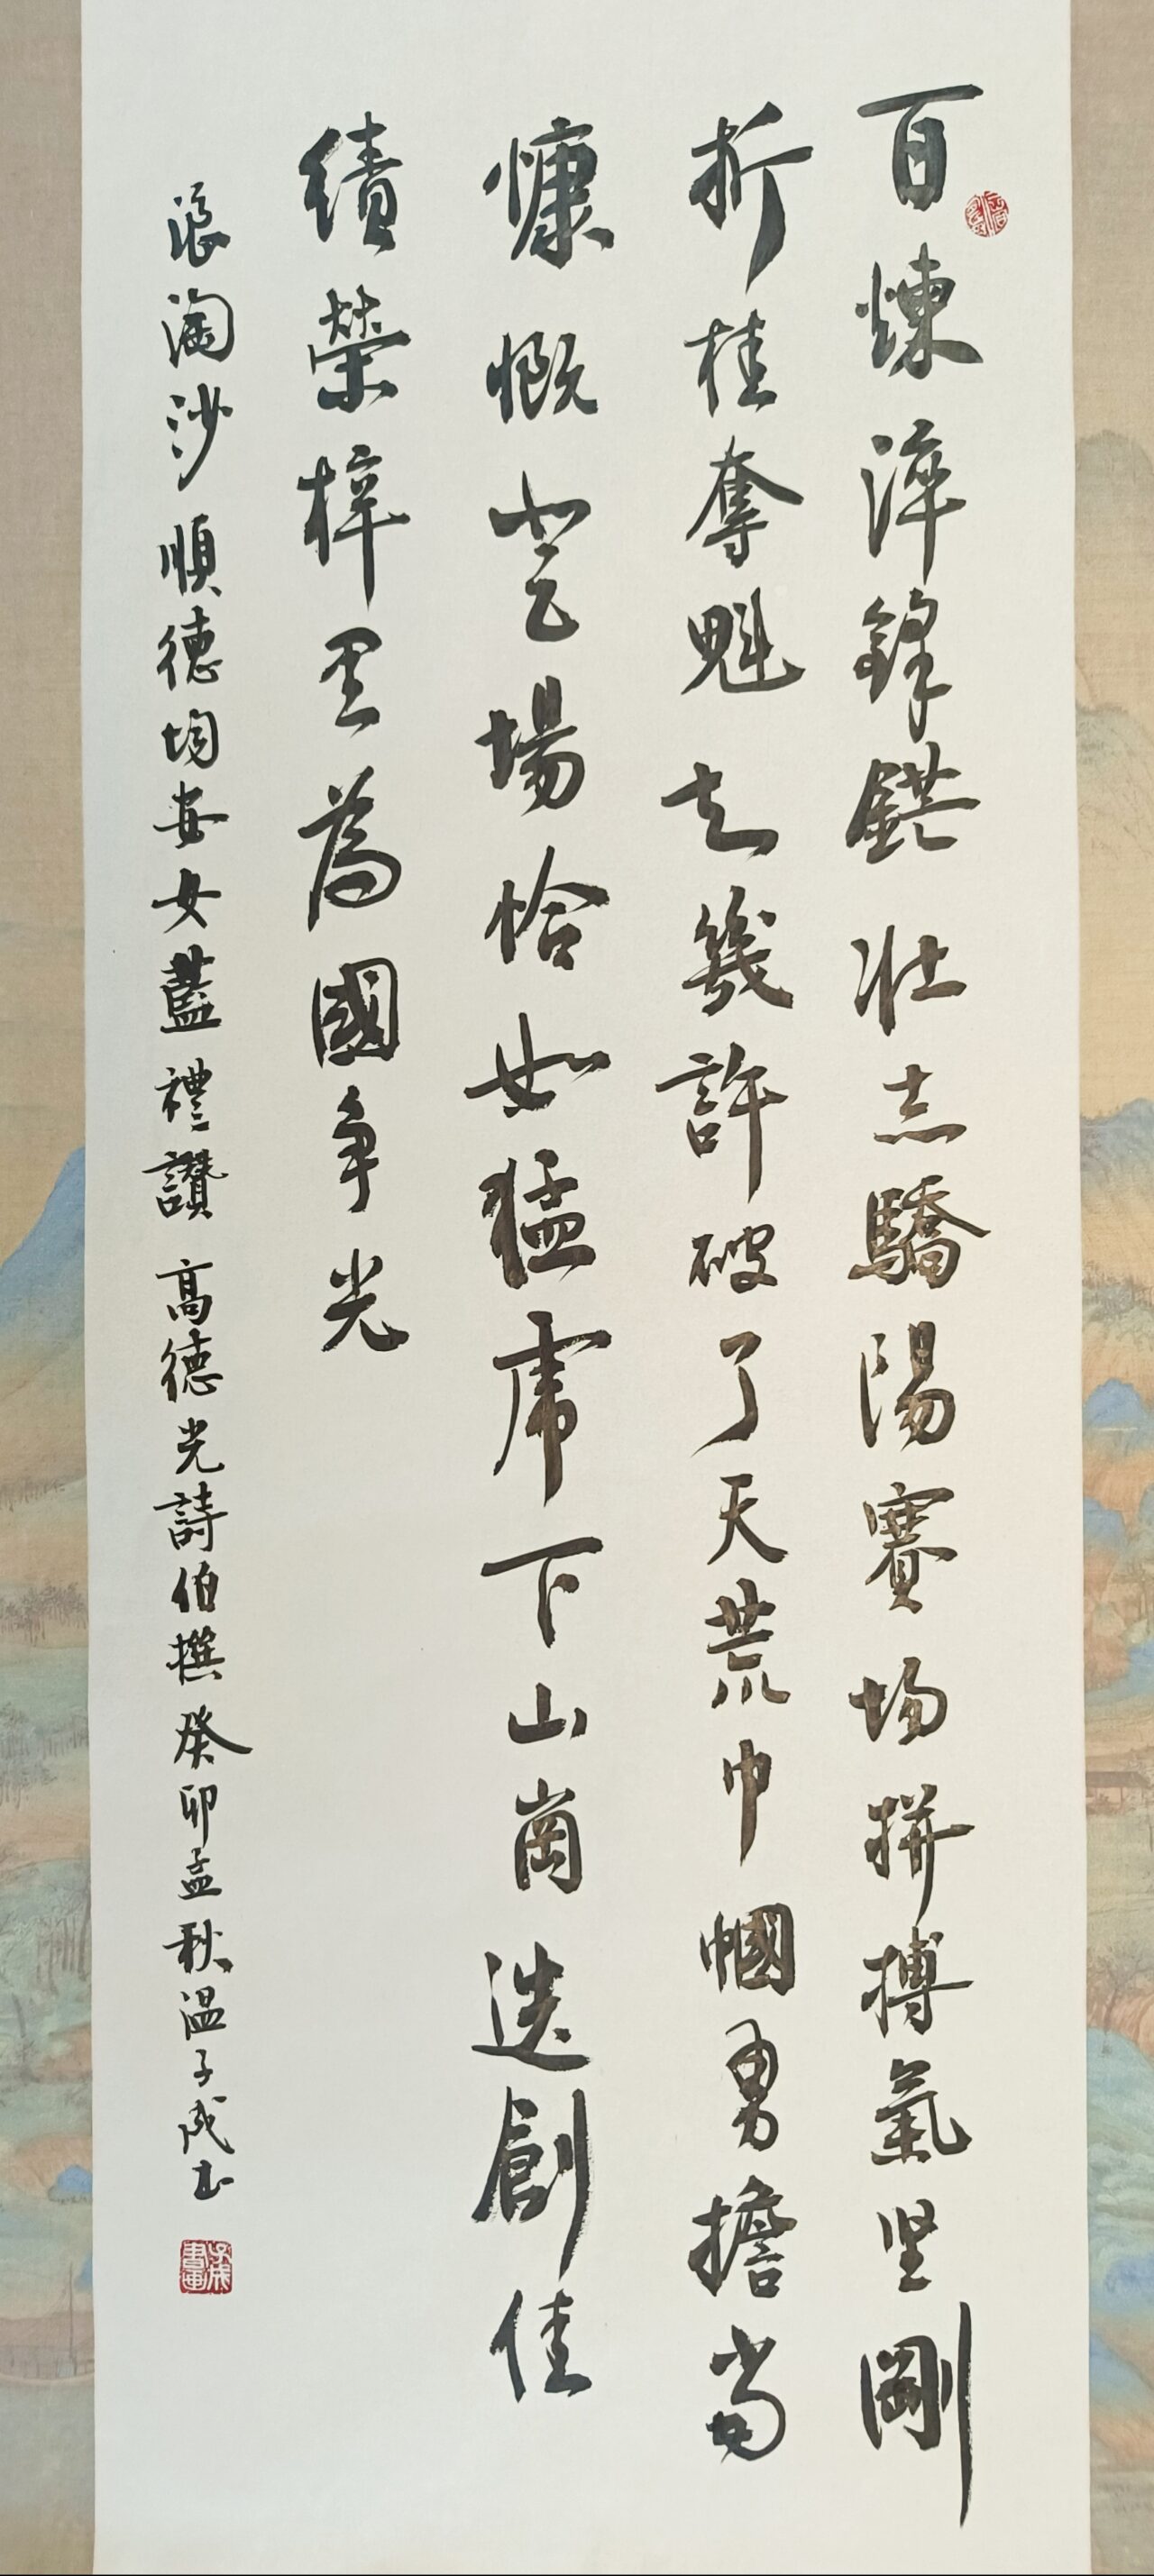 百煉淬鋒鋩壯志驕陽賽场拼搏氣坚剛
折桂奪魁知幾許破了天荒巾幗勇擔当
慷慨登場恰如猛虎下山崗迭創佳
績榮梓里為國争光
浪淘沙順德均安女籃禮讚高德光詩伯撰癸卯孟秋温子成书